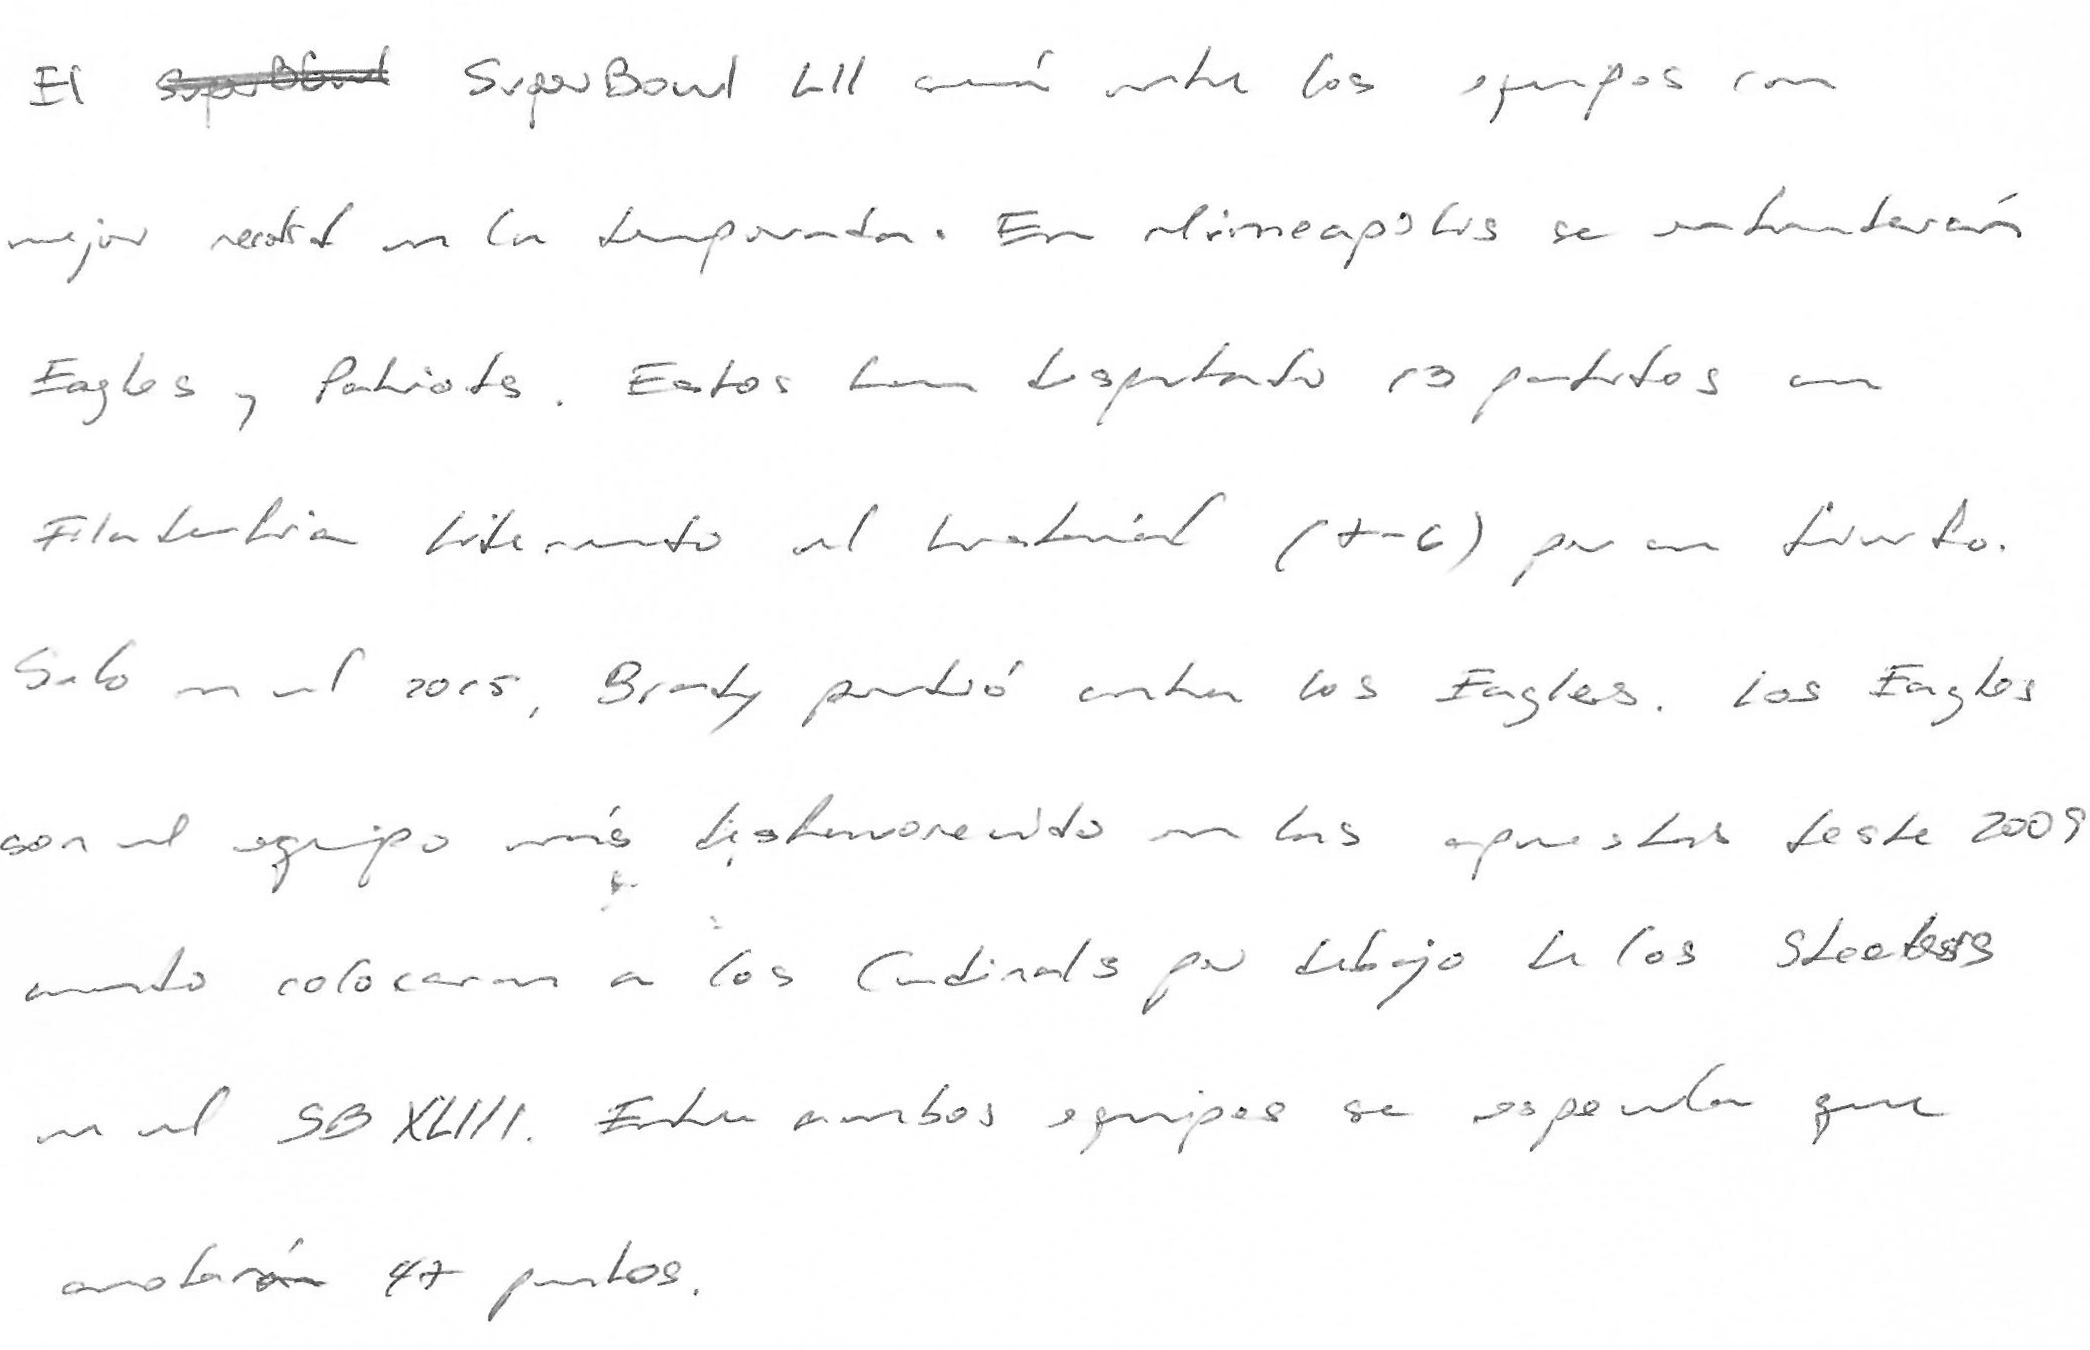 El ~~SuperBowl~~ SuperBowl LII será entre los equipos con
mejor record en la temporada. En Minneapolis se enfrentarán
Eagles y Patriots. Estos han disputado 13 partidos con
Filadelfia liderando el historial (7-6) por un triunfo.
Solo en el 2015, Brady perdió contra los Eagles. Los Eagles
son el equipo más desfavorecido en las apuestas desde 2009
cuando colocaron a los Cardinals por debajo de los Steelers
en el SB XLIII. Entre ambos equipos se especula que
anotarán 47 puntos.